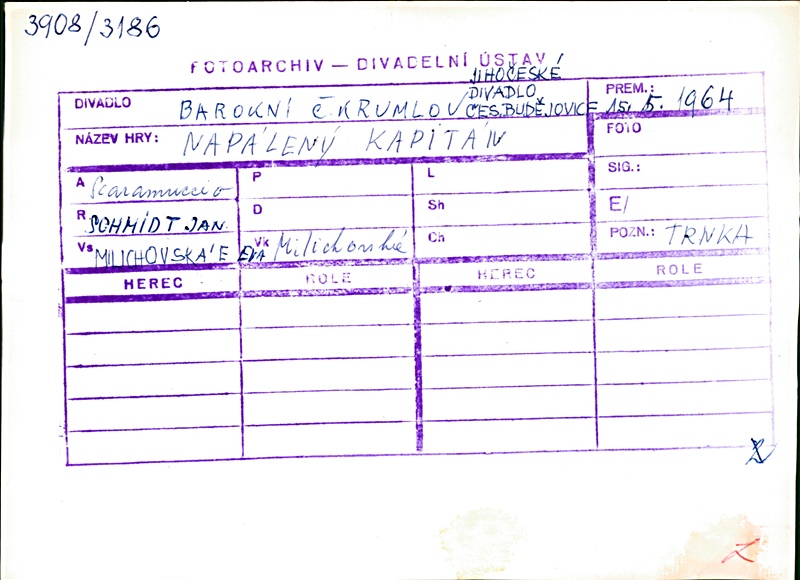 3908/3186
FOTOARCHIV — DIVADELNÍ ÚSTAV
DIVADLO BAROKNÍ Č. KRUMLOV JIHOČESKÉ DIVADLO, ČES. BUDĚJOVICE
PREM.: 15. 5. 1964
NÁZEV HRY: NAPÁLENÝ KAPITÁN
FOTO
A Scaramuccio
P
L
SIG.:
R SCHMIDT JAN
D
Sh
E/
Vs MILICHOVSKÁ E EVA
Vk Milichovská
Ch
POZN.: TRNKA
HEREC ROLE HEREC ROLE